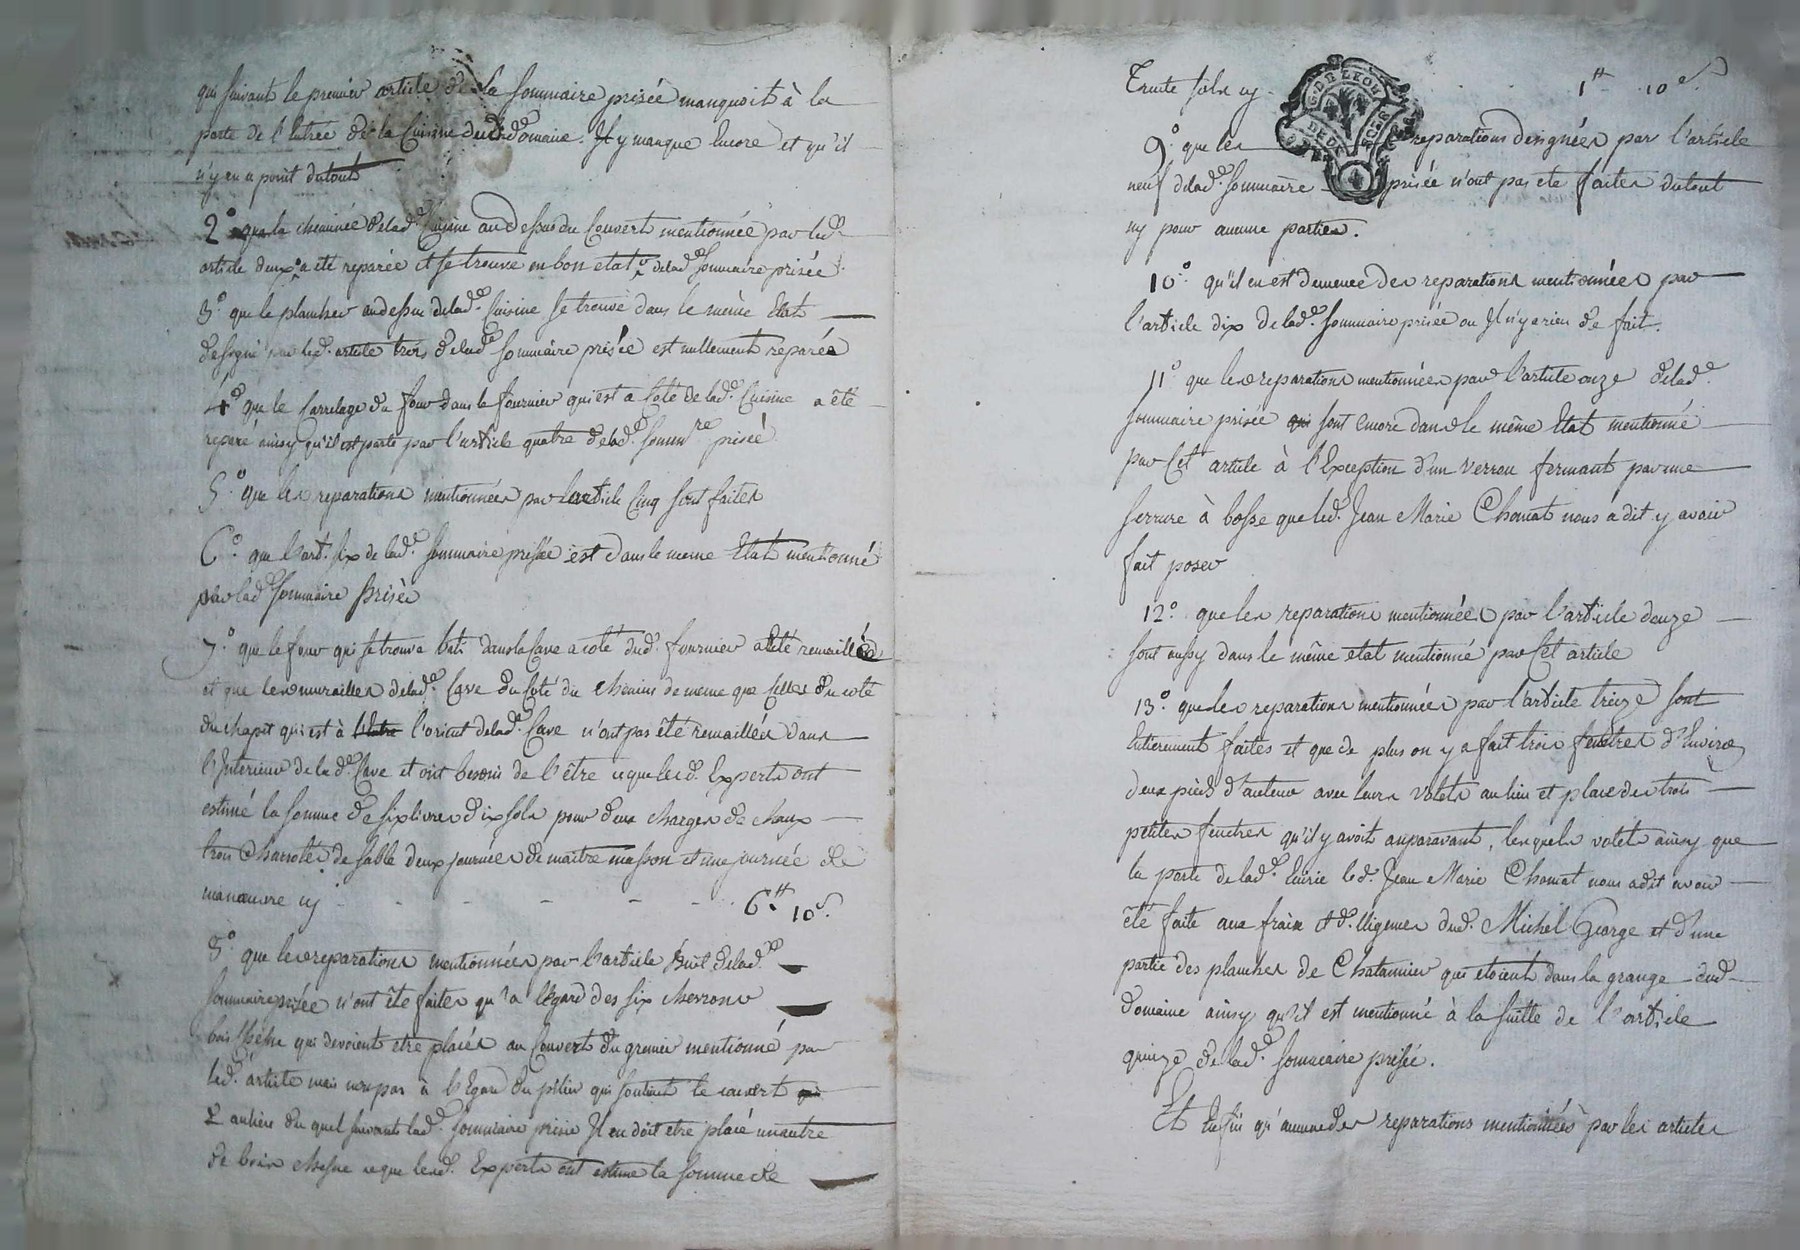 qui suivant le premier article de la sommaire prisée manquoit à la
porte de l'entrée de la Cuisine dud. domaine. Il y manque encore et qu'il
n'y en a point dutout
2.° que la cheminée de lad.e Cuisine au dessus du Couvert mentionnée par led.
article deux a été reparée et se trouve en bon etat de lad.e sommaire prisée.
3.° que le plancher au dessus de lad.e Cuisine se trouve dans le même Etat
designé par led. article trois de lad.e sommaire prisée est nullement reparée
4.° que le Carrelage du four dans le fournier qui est a Coté de lad.e Cuisine a été
reparé ainsy qu'il est porté par l'article quatre de lad.e somm.re prisée
5.° que les reparations mentionnées par l'article Cinq sont faites
6.° que l'art. six de lad.e sommaire prisée est dans le meme Etat mentionné
par lad.e sommaire Prisée
7.° que le four qui se trouve bati dans la Cave a coté dud. fournier a été remaillée
et que les murailles de lad.e Cave du Coté du chemin de meme que celles du coté
du chapit qui est à l'orient de lad.e Cave n'ont pas été remaillées dans
l'Interieur de lad.e Cave et ont besoin de l'être ce que lesd. Experts ont
estimé la somme de six livres dix sols pour deux charges de chaux
trois Charrotés de sable deux journées de maitre masson et une journée de
manœuvre cy - - - - - 6.tt 10.s
8.° que les reparations mentionnées par l'article huit de lad.e
sommaire prisée n'ont été faites qu'a l'égard des six chevrons
bois chêne qui devoient etre placés au Couvert du grenier mentionné par
led. article mais non pas à l'Egard du pilier qui soutient le couvert qui
au lieu du quel suivant lad. sommaire prisée Il en doit etre placé un autre
de bois chesne ce que lesd. Experts ont estimé la somme de
Trente sols cy - 1.tt 10.s
G. DE LYON
9.° que les reparations designées par l'article
neuf de lad.e sommaire prisée n'ont pas été faites dutout
ny pour aucune parties.
10.° qu'il en est de meme des reparations mentionnées par
l'article dix de lad.e sommaire prisée ou Il n'y a rien de fait.
11.° que les reparations mentionnées par l'article onze de lad.e
sommaire prisée qui sont encore dans le même Etat mentionné
par Cet article à l'Exception d'un verrou fermant par une
serrure à bosse que led. Jean Marie Chomat nous a dit y avoir
fait poser
12.° que les reparations mentionnées par l'article douze
sont aussy dans le même etat mentionné par Cet article
13.° que les reparations mentionnées par l'article treize sont
Entierement faites et que de plus on y a fait trois fenêtres d'Environ
deux pieds d'auteur avec leurs volets au lieu et place des trois
petites fenetres qu'il y avoit auparavant, lesquels volets ainsy que
la porte de lad.e Ecurie led. Jean Marie Chomat nous a dit avoir
été faite aux fraix et diligences dud. Michel George et d'une
partie des planches de Chatanier qui etoient dans la grange dud.
domaine ainsy qu'il est mentionné à la suitte de l'article
quinze de lad.e sommaire prisée.
Et Enfin qu'aucune des reparations mentionnées par les articles